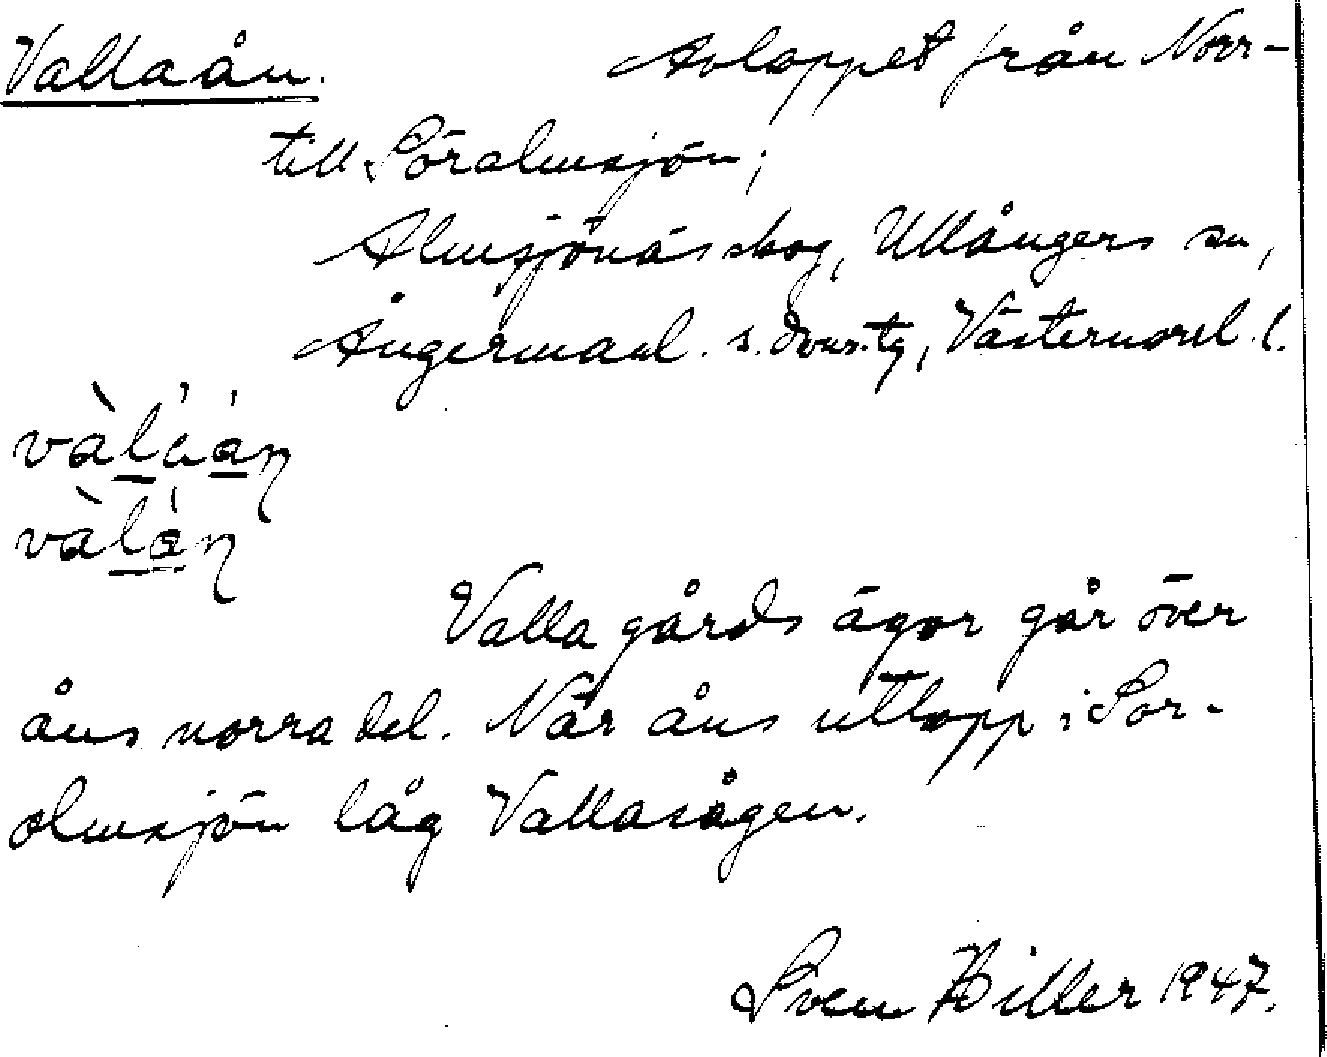 Vallaån. Avloppet från Norr-
till Söralmsjön;
Almsjönäs skog, Ullångers sn,
Ångermanl. s. doms.tg, Västernorrl. l.
vàláán
vàlán
Valla gårds ägor går över
åns norra del. När åns utlopp i Sör-
almsjön låg Vallasågen.
Sven Hiller 1947.